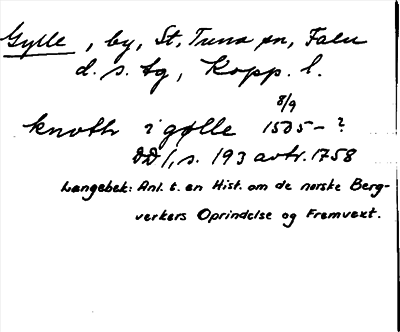 Gylle, by, St. Tuna sn, Falu
d. s. tg, Kopp. l.
8/9
knoth i gølle 1505-?
DD 1, s. 193 avtr. 1758
Langebek: Anl. t. en Hist. om de norske Berg-
verkers Oprindelse og Fremvext.